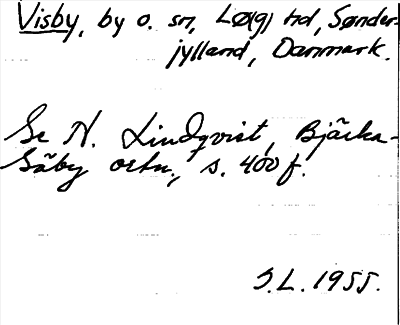 Visby, by o. sn, Lø(g) hd, Sønder-
jylland, Danmark.
Se N. Lindqvist, Bjärka-
Säby ortn., s. 400 f.
S.L. 1955.